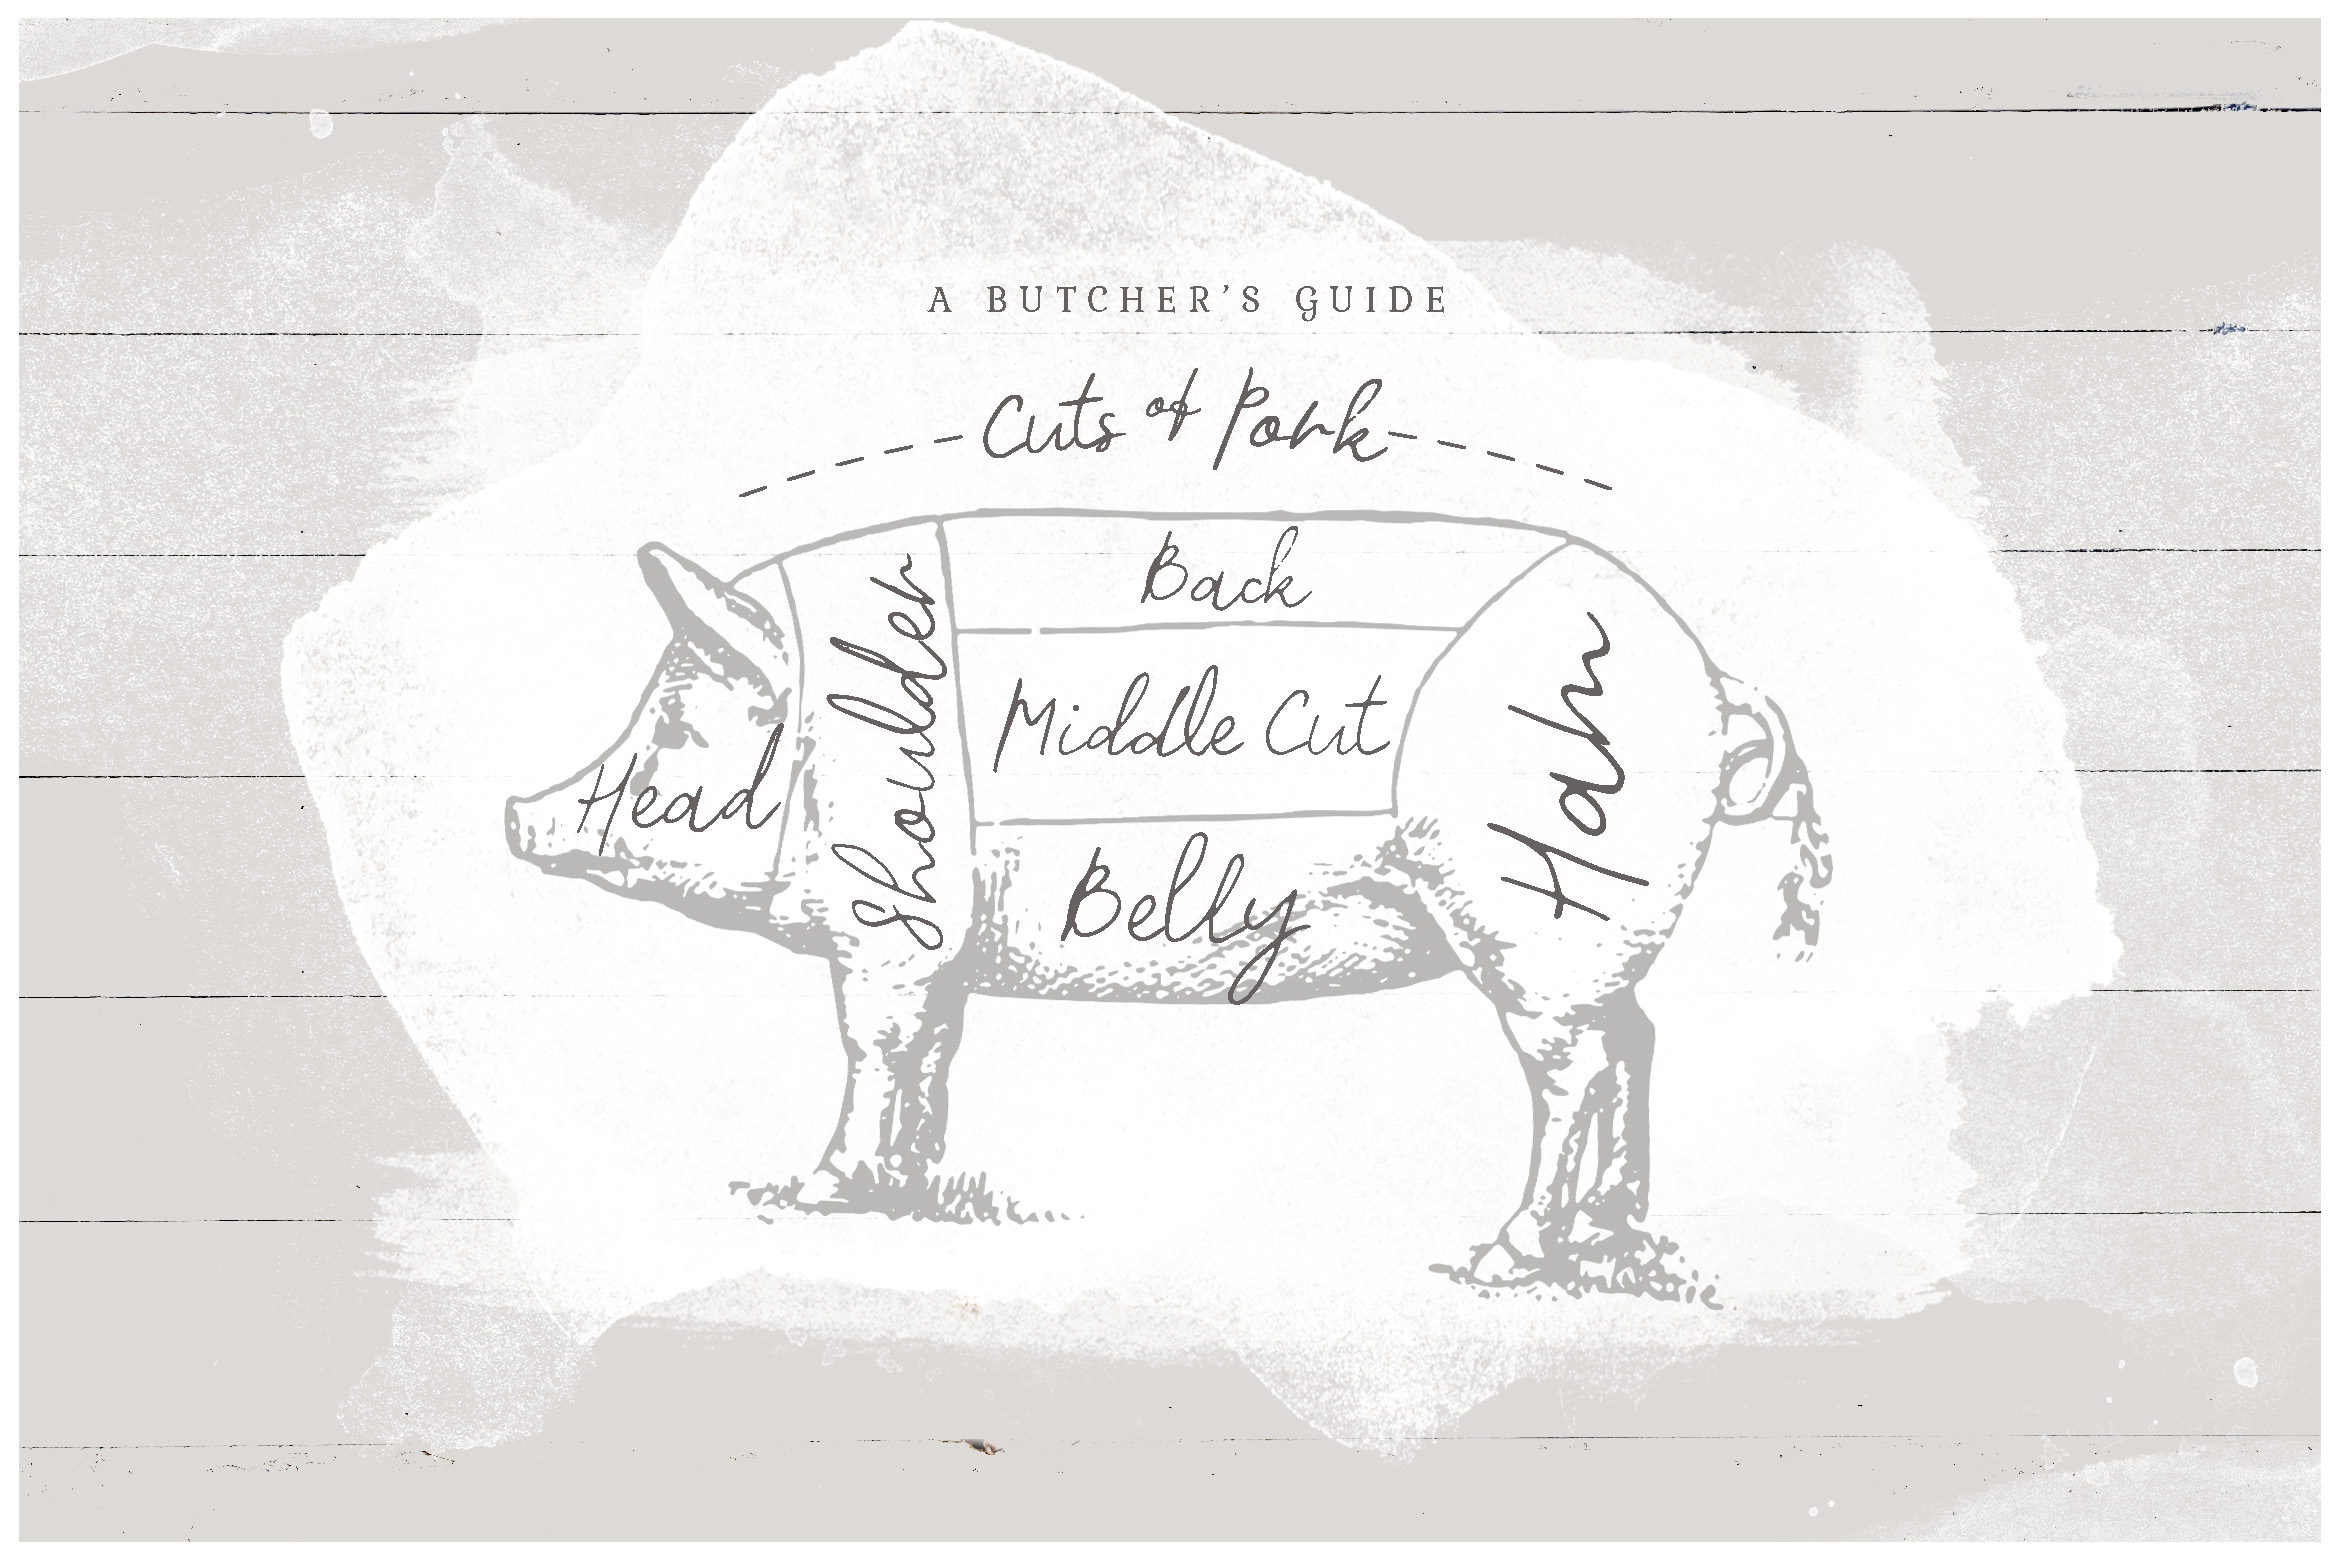 A BUTCHER'S GUIDE
Cuts of Pork
Back
Shoulder
Ham
Middle Cut
Head
Belly